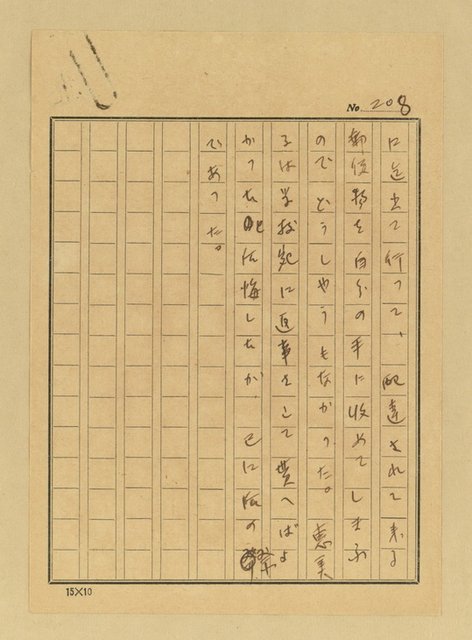 No. 208
に迄出て行って、配達されて来る
郵便物を自分の手に収めてしまふ
のでどうしやうもなかった。恵美
子は学校宛に返事をこして貰へばよ
かったと後悔したが、已に後の祭
であった。
15×10